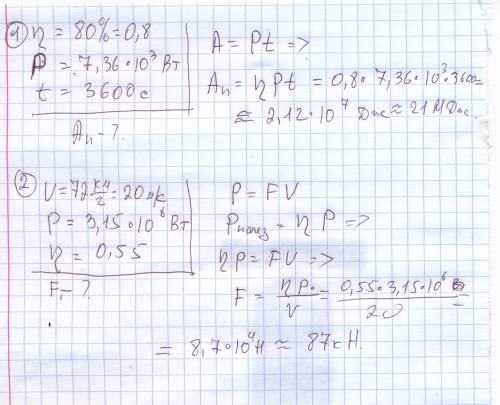 ① η = 80% = 0,8
P = 7,36·10³ Вт
t = 3600 с
Aп - ?
A = Pt =>
Aп = ηPt = 0,8·7,36·10³·3600=
≈ 2,12·10⁷ Дж ≈ 21 МДж.
② V = 72 км/г = 20 м/с
P = 3,15·10⁶ Вт
η = 0,55
F - ?
P = FV
Pполез = ηP =>
ηP = FV =>
F = ηP/V = 0,55·3,15·10⁶/20 =
= 8,7·10⁴Н ≈ 87кН.